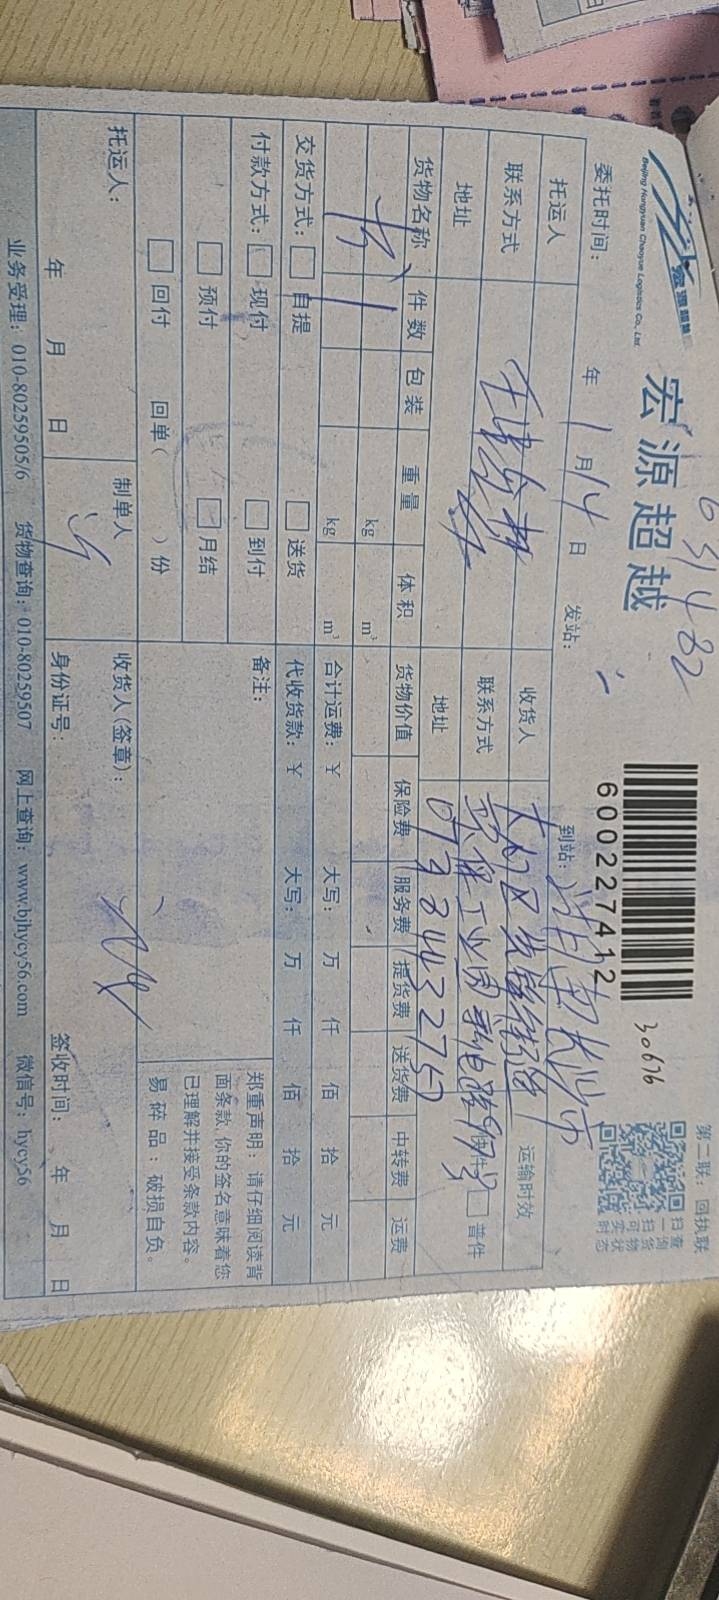 宏源超越
Beijing Hongyuan Chaoyue Logistics Co., Ltd.
宏源超越
631482
600227412
30676
第二联：回执联
扫查
一询
扫货
可物
实状
时态
委托时间： 年 1 月 14 日 发站： 到站： 湖南长沙市
托运人
收货人
运输时效
联系方式
联系方式
普件
地址
地址
073 8443 2757
货物名称 件数 包装 重量 体积 货物价值 保险费 服务费 提货费 送货费 中转费 运费
1 kg m³
kg m³
合计运费：¥ 大写： 万 仟 佰 拾 元
交货方式： 自提 送货
代收货款：¥ 大写： 万 仟 佰 拾 元
付款方式： 现付 到付
备注：
预付 月结
回付 回单（ ）份
郑重声明：请仔细阅读背
面条款，你的签名意味着您
已理解并接受条款内容。
易碎品：破损自负。
托运人：
制单人
收货人(签章)：
年 月 日
身份证号：
签收时间： 年 月 日
业务受理：010-80259505/6 货物查询：010-80259507 网上查询：www.bjhycy56.com 微信号：hycy56